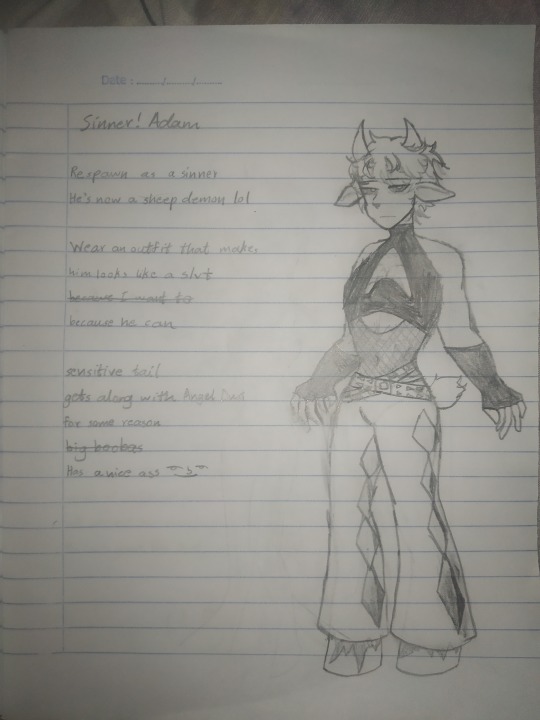 Date : ___/___/___
Sinner! Adam
Respawn as a sinner
He's now a sheep demon lol
Wear an outfit that makes
him looks like a slut
because I want to
because he can
sensitive tail
gets along with Angel Dust
for some reason
big boobas
Has a nice ass ͡° ͜ʖ ͡°